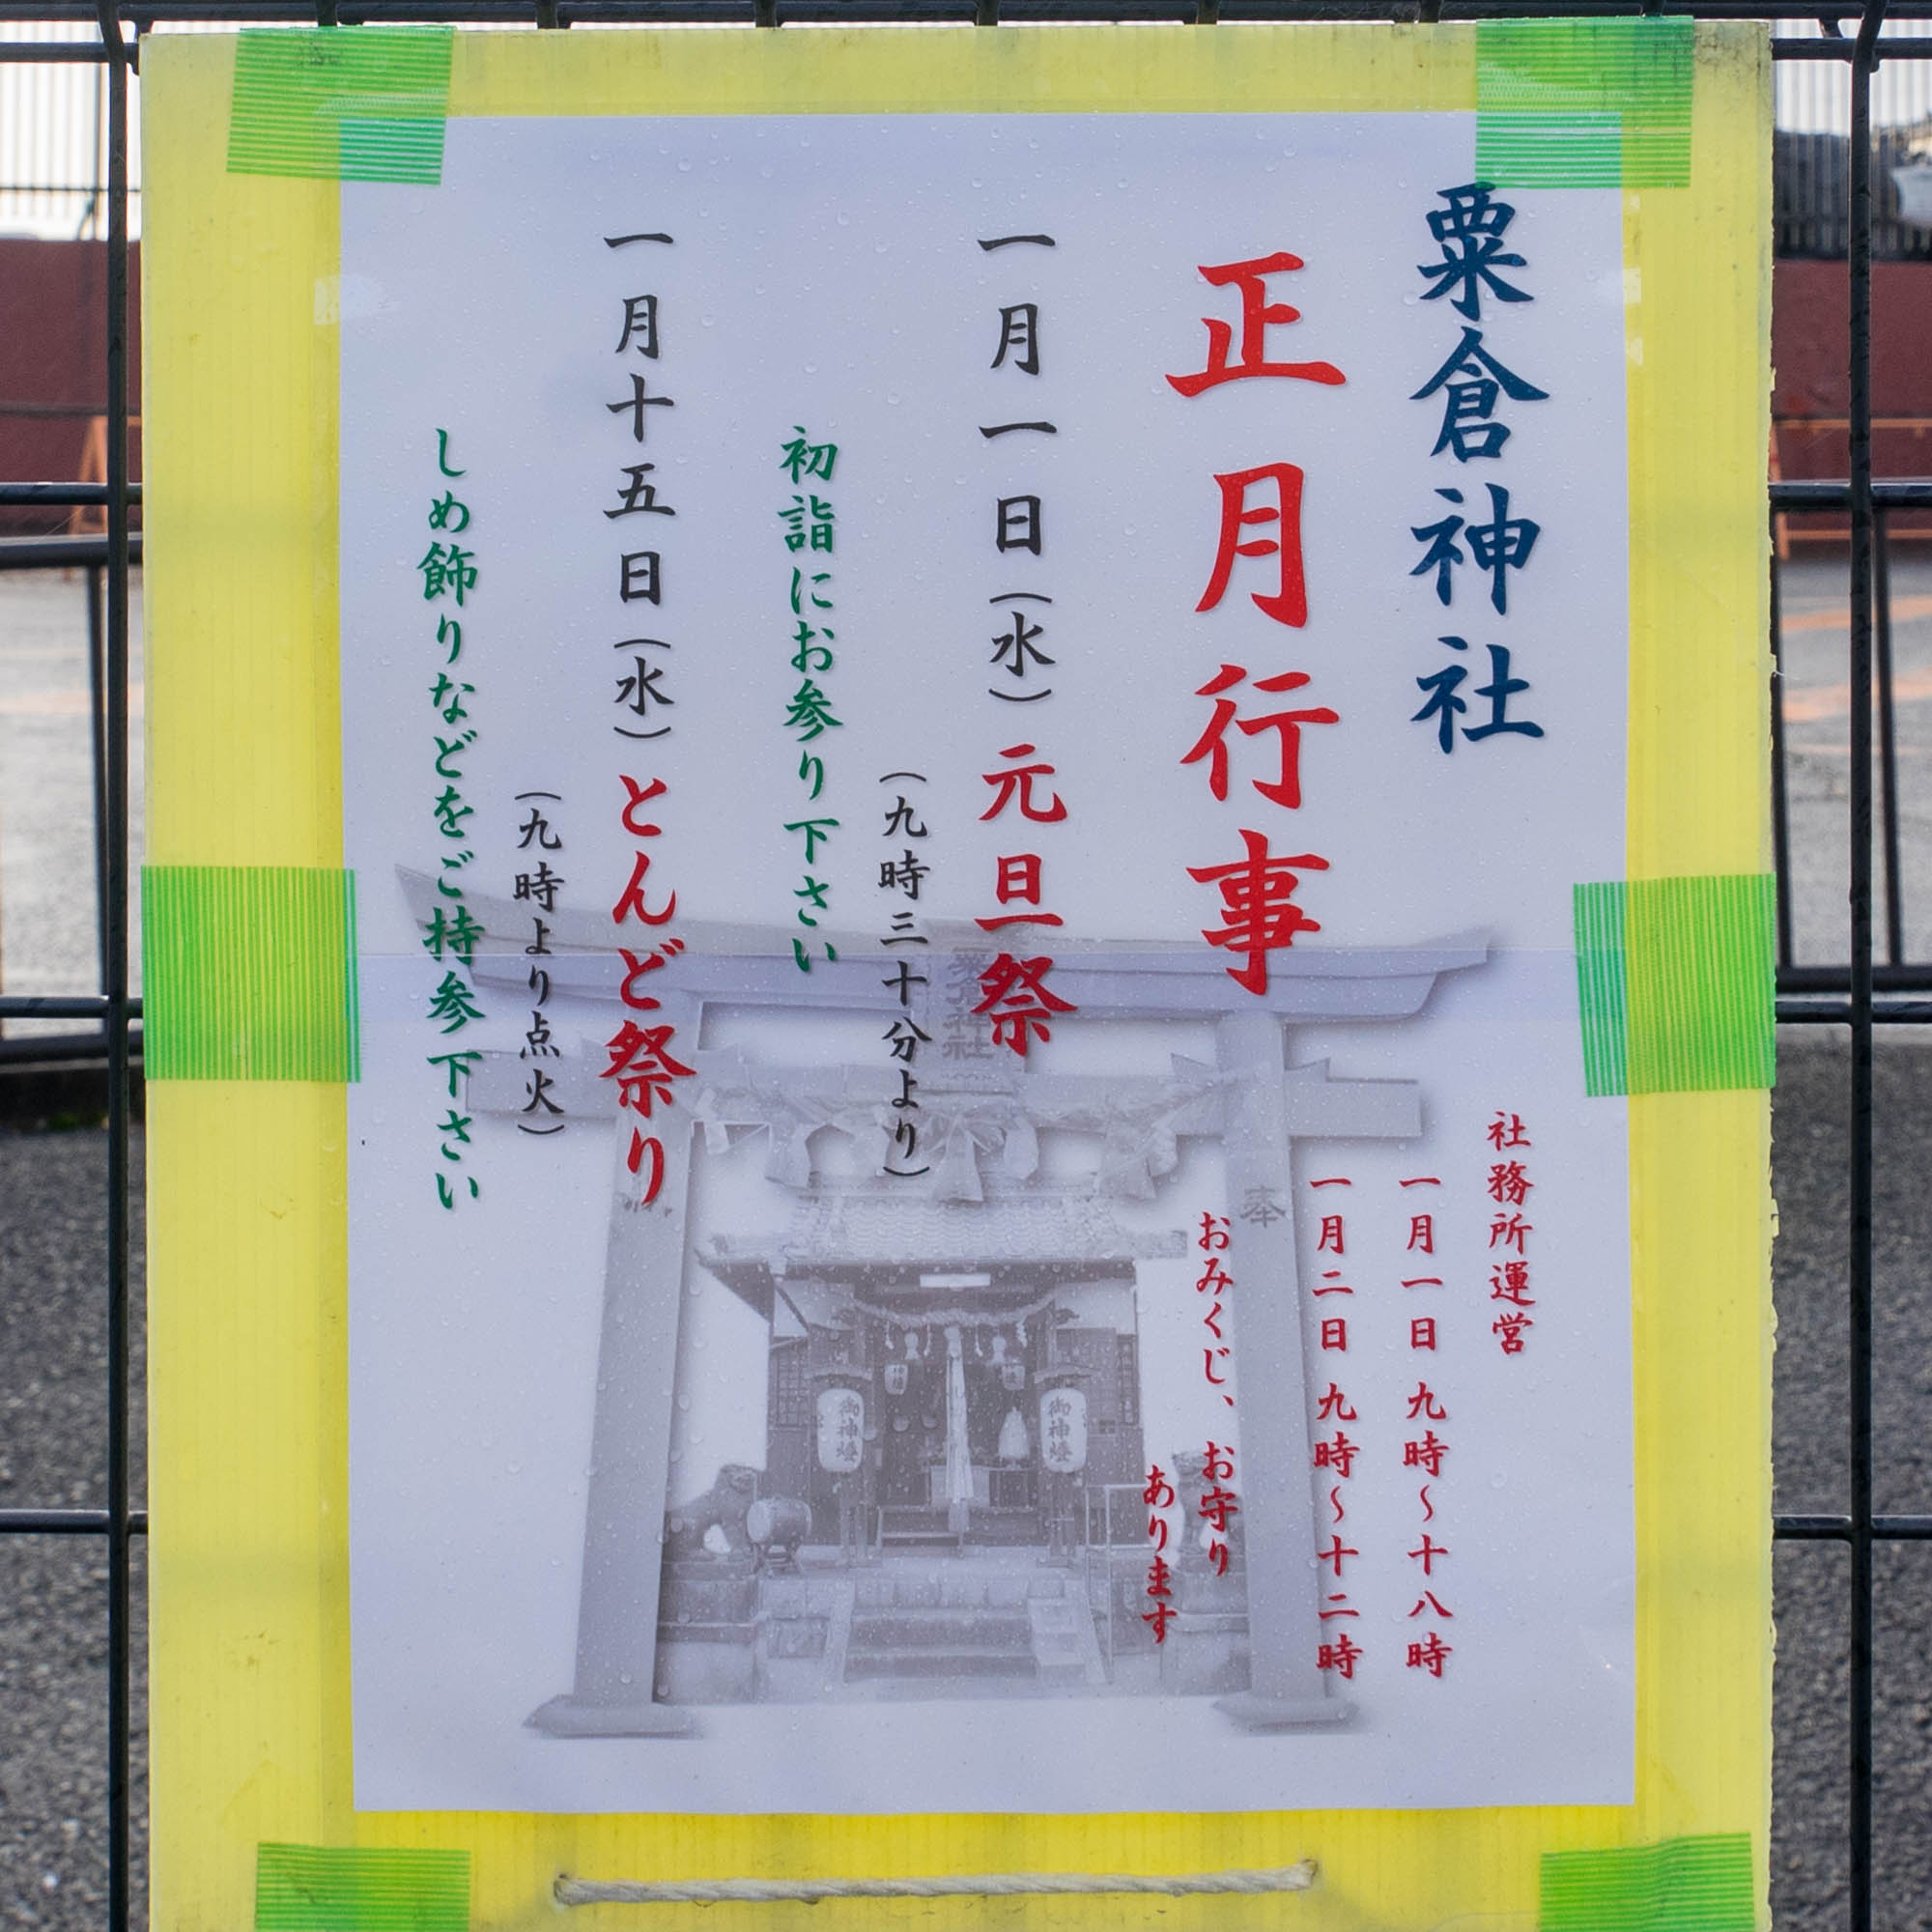 粟倉神社
正月行事
一月一日(水)元旦祭
(九時三十分より)
初詣にお参り下さい
一月十五日(水)とんど祭り
(九時より点火)
しめ飾りなどをご持参下さい
社務所運営
一月一日 九時～十八時
一月二日 九時～十二時
おみくじ、お守り
あります
粟倉神社
奉
御神燈
御神燈